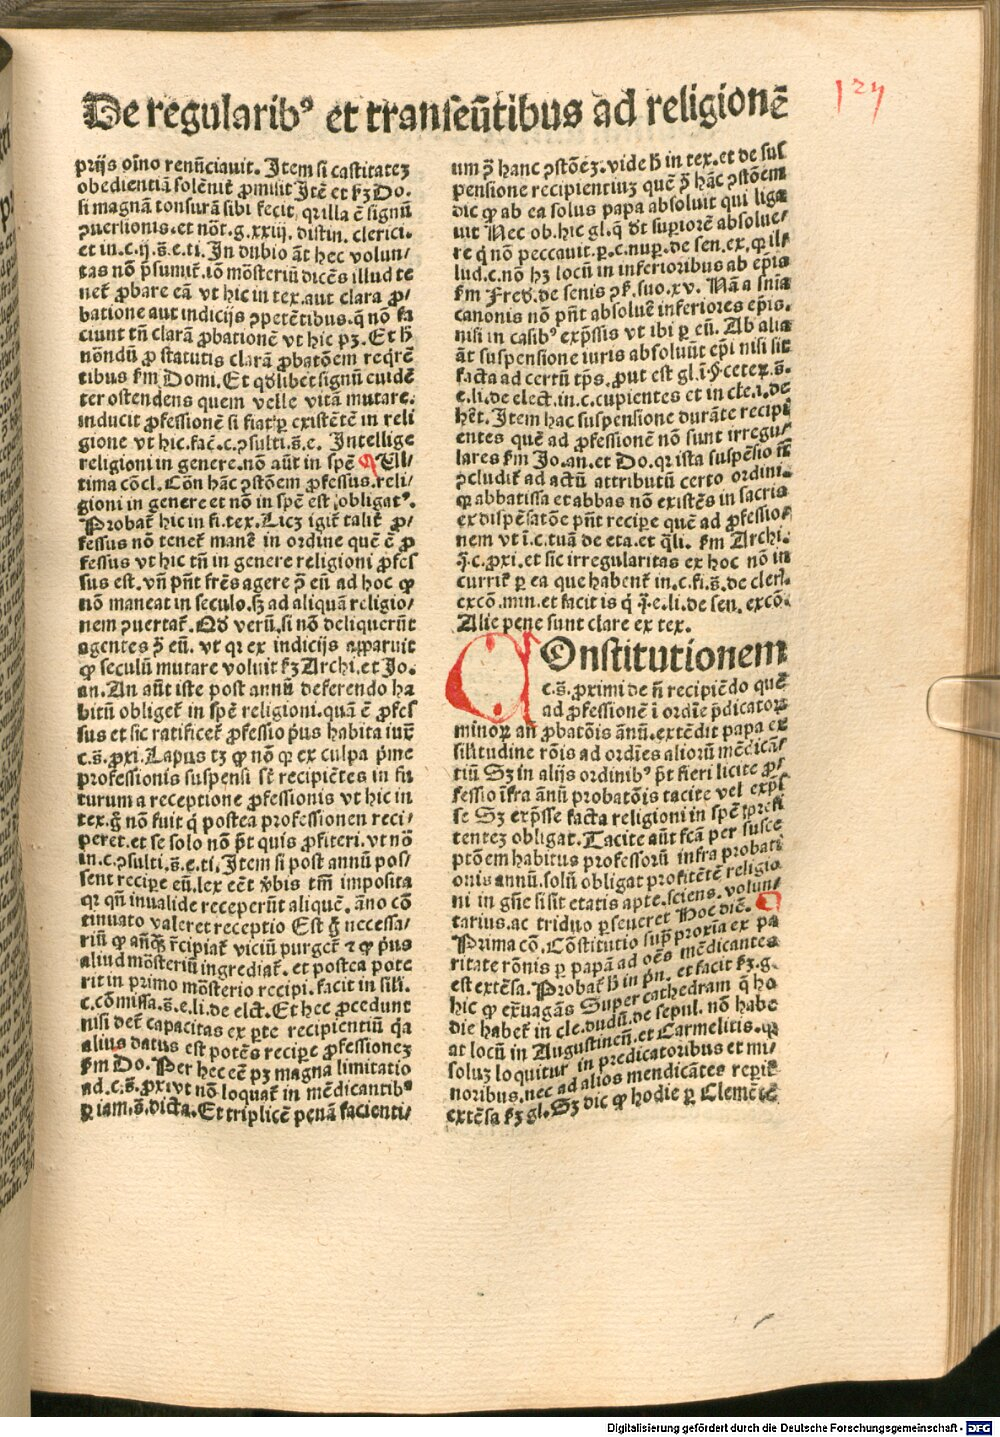 De regularibꝰ et tranſeũtibus ad religionē
127
prijs oīno renũciauit. Item ſi caſtitateꝫ
obedientiā ſolēnit̄ ꝓmiſit Itē et ẜm Do.
ſi magnā tonſurā ſibi fecit, qꝛ illa ē ſignū
ꝯuerſionis. et nōt. g. xxiij. diſtin. clerici.
et in. c. ij. s̄. e. ti. In dubio āt hec volun/
tas nō p̄ſumit̄. iō mōſteriū dicēs illud te
net̄ ꝓbare eā vt hic in tex. aut clara ꝓ/
batione aut indicijs ꝯpetētibus. q̄ nō fa
ciunt tn̄ clarā ꝓbationē vt hic pꝫ. Et h̄
nōndū ꝓ ſtatutis clarā ꝓbatōem reqrē
tibus ẜm Domi. Et qd̄libet ſignū euidē
ter oſtendens quem velle vitā mutare.
inducit ꝓfeſſionē ſi fiat ꝑ exiſtētē in reli
gione vt hic. fac̄. c. ꝯſulti. s̄. e. Intellige
religioni in genere. nō aūt in ſpē Ul/
tima cōcl. Cōn hāc ꝯſtōem ꝓfeſſus. reli/
gioni in genere et nō in ſpē eſt obligatꝰ.
Probat̄ hic in fi. tex. Licꝫ igit̄ talit̄ ꝓ/
feſſus nō tenet̄ manē in ordine quē ē ꝓ
feſſus vt hic tn̄ in genere religioni ꝓfeſ
ſus eſt. vn̄ pn̄t frēs agere ꝓ eū ad hoc ꝙ
nō maneat in ſeculo. ſꝫ ad aliquā religio/
nem ꝯuertat̄. Qd̄ verū. ſi nō deliquerūt
agentes ꝓ eū. vt qꝛ ex indicijs apparuit
ꝙ ſeculū mutare voluit ẜm Archi. et Jo.
an. An aūt iſte poſt annū deferendo ha
bitū obliget̄ in ſpē religioni. quā ē ꝓfeſ
ſus et ſic ratificet̄ ꝓfeſſio p̄us habita iux̄
c. s̄. ꝓxi. Lapus tꝫ ꝙ nō qꝛ ex culpa p̄me
profeſſionis ſuſpenſi ſt̄ recipiētes in fu
turum a receptione ꝓfeſſionis vt hic in
tex. g̊ nō fuit q̄ poſtea profeſſionen reci/
peret. et ſe ſolo nō p̄t quis ꝓfiteri. vt nō
in. c. ꝯſulti. s̄. e. ti. Item ſi poſt annū poſ/
ſent recipe eū. lex eēt v̄bis tm̄ impoſita
qꝛ qn̄ inualide receperūt aliquē. āno cō
tinuato valeret receptio Eſt g̊ neceſſa/
riū ꝙ anq̄ꝫ r̄cipiat̄ viciū purget̄ ⁊ ꝙ p̄us
aliud mōſteriū ingrediat̄. et poſtea pote
rit in primo mōſterio recipi. facit in ſili.
c. cōmiſſa. s̄. e. li. de elect̄. Et hec ꝓcedunt
niſi det̄ capacitas ex ꝑte recipientiū q̄a
alius datus eſt potēs recipe ꝓfeſſioneꝫ
ẜm Do. Per hec eē pꝫ magna limitatio
ad. c. s̄. ꝓxi vt nō loquat̄ in mēdicantibꝰ
ꝑ iam. s̄. dicta. Et triplicē penā facienti/
um ꝓ hanc ꝯſtōeꝫ. vide h̄ in tex. et de ſuſ
penſione recipientiuꝫ quē ꝓ hāc ꝯſtōem
dic ꝙ ab ea ſolus papa abſoluit qui liga
uit Nec ob. hic gl. q̄ dt̄ ſupiorē abſolue/
re q̄ nō peccauit. ꝑ. c. nuꝑ. de ſen. ex. qꝛ il/
lud. c. nō hꝫ locū in inferioribus ab ep̄is
ẜm Fred. de ſenis ꝯẜ. ſuo. xv. Nā a ſn̄ia
canonis nō pn̄t abſoluē inferiores ep̄is.
niſi in caſibꝰ exp̄ſſis vt ibi ꝑ eū. Ab alia
āt ſuſpenſione iuris abſoluūt ep̄i niſi ſit
facta ad certū tp̄s. ꝓut eſt gl. ī. ꝟ. ceteꝝ. s̄.
e. li. de elect. in. c. cupientes et in cle. i. de
hēt. Item hac ſuſpenſione durāte recipi
entes quē ad ꝓfeſſionē nō ſunt irregu/
lares ẜm Jo. an. et Do. qꝛ iſta ſuſpēſio nō
ꝯcludit̄ ad actū attributū certo ordini.
qꝛ abbatiſſa et abbas nō exiſtēs in ſacris
ex diſpēſatōe pn̄t recipe quē ad ꝓfeſſio/
nem vt ī. c. tuā de eta. et q̄li. ẜm Archi.
ī. c. ꝓxi. et ſic irregularitas ex hoc nō in
currit̄ ꝑ ea que habent̄ in. c. fi. s̄. de cleri.
excō. min. et facit is q̄ ī. e. li. de ſen. excō.
Alie pene ſunt clare ex tex.
COnſtitutionem
e. s̄. proximi de n̄ recipiēdo quē
ad ꝓfeſſionē ī ordīe p̄dicatoꝝ
minoꝝ an̄ ꝓbatōis ānū. extēdit papa ex
ſilitudine rōis ad ordīes alioru mēdicā/
tiū Sꝫ in alijs ordinibꝰ p̄t fieri licite ꝓ/
feſſio īfra ānū probatōis tacite vel exp̄ſ
ſe Sꝫ exp̄ſſe facta religioni in ſpē ipreſi
tenteꝫ obligat. Tacite aūt fcā per ſuſce
ptōem habitus profeſſorū infra probati
onis annū. ſolū obligat profitētē religio
ni in gn̄e ſi ſit etatis apte. ſciens. volun/
tarius. ac triduo ꝑſeueret Hoc diē.
Prima cō. Cōſtitutio ſup̄ proxīa ex pa
ritate rōnis ꝑ papā ad oēs mēdicantes
eſt extēſa. Probat̄ h̄ in pn̄. et facit ẜm. g.
hic ꝙ ex̄uagās Super cathedram q̄ ho
die habet̄ in cle. dudū. de ſepul. nō habe
at locū in Auguſtinen̄. et Carmelitis. qꝛ
ſoluꝫ loquitur in predicatoribus et mi/
noribus. nec ad alios mendicātes repit̄
extēſa ẜm gl. Sꝫ dic ꝙ hodie ꝑ Clemētē
Digitalisierung gefördert durch die Deutsche Forschungsgemeinschaft - DFG